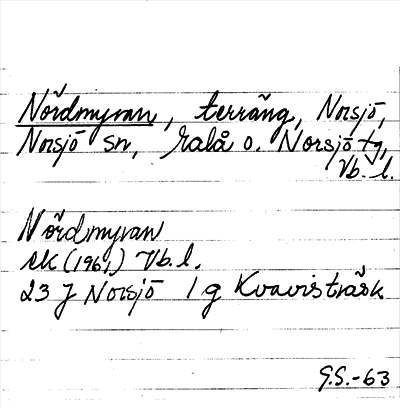 Nördmyran, terräng, Norsjö,
Norsjö sn, Malå o. Norsjö tg,
Vb. l.
Nördmyran
EK (1961) Vb. l.
23 J Norsjö 1 g Kvavisträsk
G.S.-63